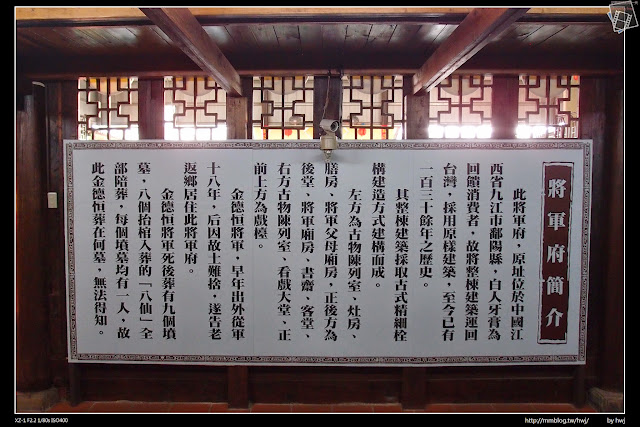 將軍府簡介
此將軍府，原址位於中國江
西省九江市鄱陽縣，白人牙膏為
回饋消費者，故將整棟建築運回
台灣，採用原樣建築，至今已有
一百三十餘年之歷史。
其整棟建築採取古式精細栓
構建造方式建構而成。
左方為古物陳列室、灶房、
膳房、將軍父母廂房，正後方為
後堂、將軍廂房、書齋、客堂、
右方古物陳列室、看戲大堂、正
前上方為戲檯。
金德恒將軍，早年出外從軍
十八年，后因故土難捨，遂告老
返鄉居住此將軍府。
金德恒將軍死後葬有九個墳
墓，八個抬棺入葬的「八仙」全
部陪葬，每個墳墓均有一人，故
此金德恒葬在何墓，無法得知。
XZ-1 F2.2 1/80s ISO400
http://mmblog.tw/hwj/
by hwj